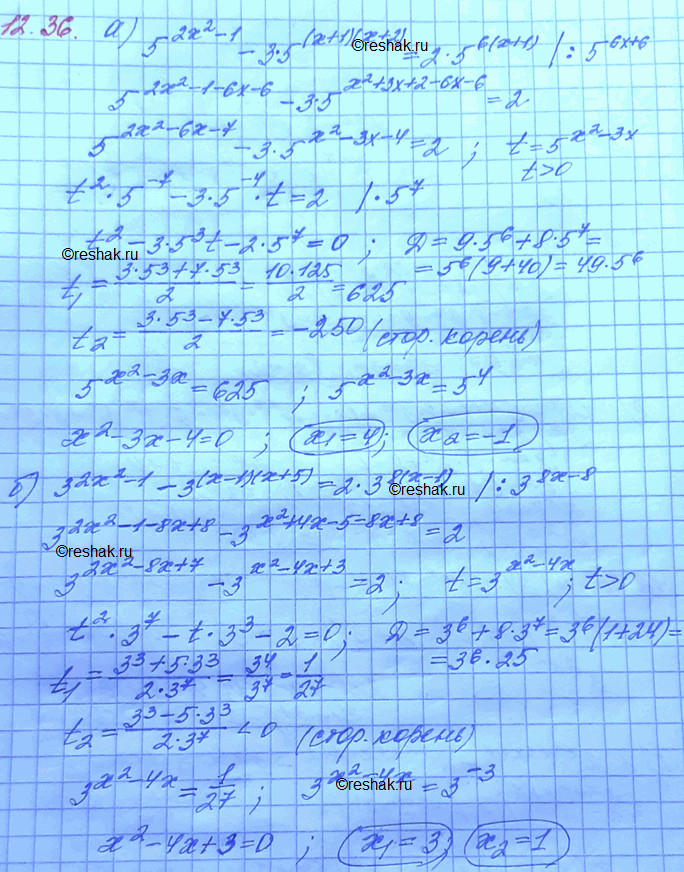 12.36. а) 5^{2x²-1} - 3·5^{(x+1)(x+2)} = 2·5^{6(x+1)} /: 5^{6x+6}
©reshak.ru
5^{2x²-1-6x-6} - 3·5^{x²+3x+2-6x-6} = 2
5^{2x²-6x-7} - 3·5^{x²-3x-4} = 2 ; t = 5^{x²-3x}
t>0
t²·5^{-7} - 3·5^{-4}·t = 2 /·5^7
t² - 3·5³t - 2·5^7 = 0 ; Д = 9·5^6 + 8·5^7 =
©reshak.ru
= 5^6(9+40) = 49·5^6
t₁ = (3·5³+7·5³)/2 = (10·125)/2 = 625
t₂ = (3·5³-7·5³)/2 = -250 (стор. корень)
5^{x²-3x} = 625 ; 5^{x²-3x} = 5^4
x² - 3x - 4 = 0 ; x₁ = 4 ; x₂ = -1
б) 3^{2x²-1} - 3^{(x-1)(x+5)} = 2·3^{8(x-1)} /: 3^{8x-8}
©reshak.ru
3^{2x²-1-8x+8} - 3^{x²+4x-5-8x+8} = 2
©reshak.ru
3^{2x²-8x+7} - 3^{x²-4x+3} = 2 ; t = 3^{x²-4x} ; t>0
t²·3^7 - t·3³ - 2 = 0 ; Д = 3^6 + 8·3^7 = 3^6(1+24) =
= 3^6·25
t₁ = (3³+5·3³)/(2·3^7) = 3^4/3^7 = 1/27
t₂ = (3³-5·3³)/(2·3^7) < 0 (стор. корень)
3^{x²-4x} = 1/27 ; 3^{x²-4x} = 3^{-3}
©reshak.ru
x² - 4x + 3 = 0 ; x₁ = 3 x₂ = 1